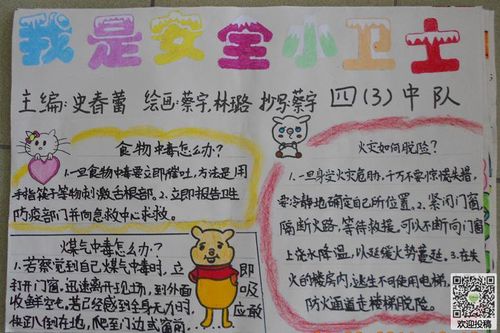 我是安全小卫士
主编:史春蕾 绘画:蔡宇,林璐 抄写:蔡宇 四(3)中队
食物中毒怎么办?
1.一旦食物中毒要立即催吐,方法是用
手指筷子等物刺激舌根部。2.立即报告卫生
防疫部门并向急救中心求救。
煤气中毒怎么办?
1.若察觉到自己煤气中毒时,立即
打开门窗,迅速离开现场,到外面吸
收鲜空气,若已经感到全身无力时,应敢
快趴倒在地,爬至门边或窗前
火灾如何脱险?
1.一旦身受火灾危胁,千万不要惊慌失措,
要冷静地确定自己所位置。2.紧闭门窗,
隔断火路,等待救援,可以不断向门窗
上浇水降温,以延缓火势蔓延。3.在失
火的楼房内,逃生不可使用电梯,
防火通道走楼梯脱险。
欢迎投稿